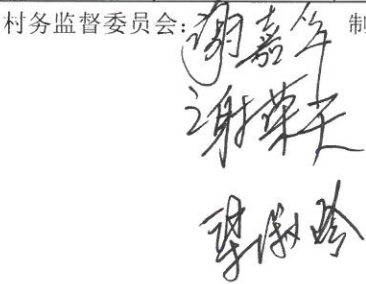 村务监督委员会：谢嘉年 制
谢荣天
梁淑玲